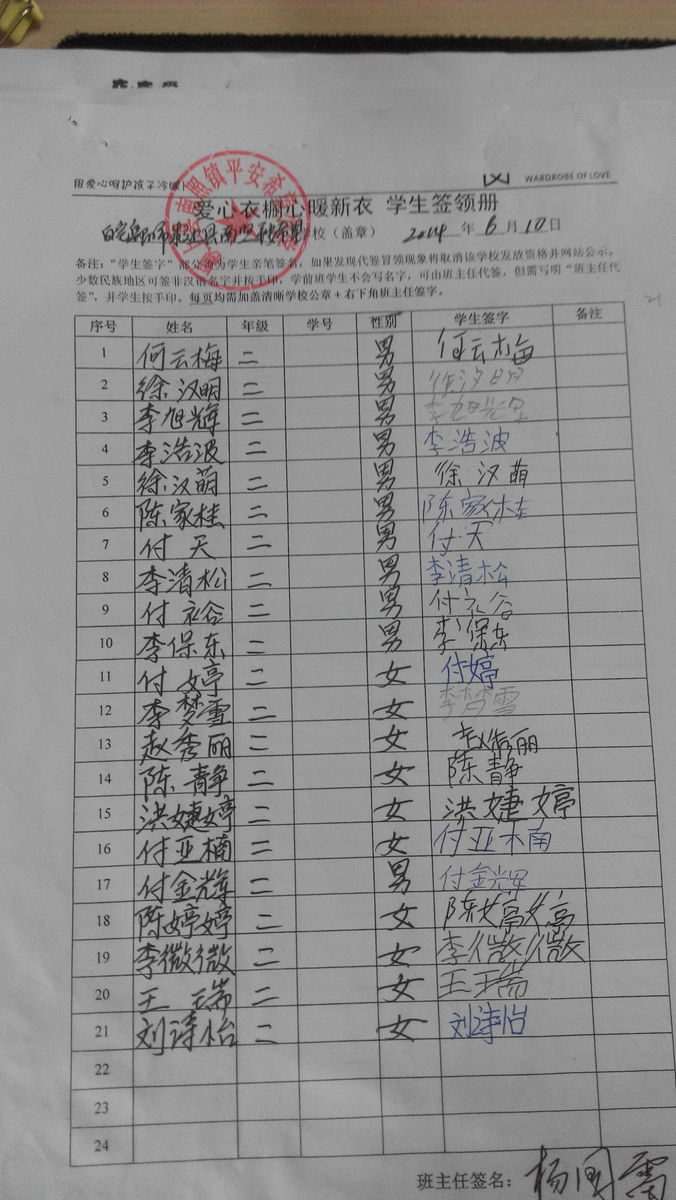 用爱心呵护孩子冷暖
WARDROBE OF LOVE
爱心衣橱心暖新衣 学生签领册
学校（盖章） 2014 年 6 月 10 日
备注：“学生签字”部分须为学生亲笔签名，如果发现代签冒领现象将取消该学校发放资格并网站公示。
少数民族地区可签非汉语名字并按手印，学前班学生不会写名字，可由班主任代签，但需写明“班主任代
签”，并学生按手印。每页均需加盖清晰学校公章+右下角班主任签字。
序号 姓名 年级 学号 性别 学生签字 备注
1 何云梅 二 男 何云梅
2 徐汉明 二 男 徐汉明
3 李旭辉 二 男 李旭辉
4 李浩波 二 男 李浩波
5 徐汉萌 二 男 徐汉萌
6 陈家桂 二 男 陈家桂
7 付天 二 男 付天
8 李清松 二 男 李清松
9 付礼谷 二 男 付礼谷
10 李保东 二 男 李保东
11 付婷 二 女 付婷
12 李梦雪 二 女 李梦雪
13 赵秀丽 二 女 赵秀丽
14 陈静 二 女 陈静
15 洪婕婷 二 女 洪婕婷
16 付亚楠 二 女 付亚楠
17 付金辉 二 男 付金辉
18 陈婷婷 二 女 陈婷婷
19 李微微 二 女 李微微
20 王瑞 二 女 王瑞
21 刘诗怡 二 女 刘诗怡
22
23
24
班主任签名：杨国